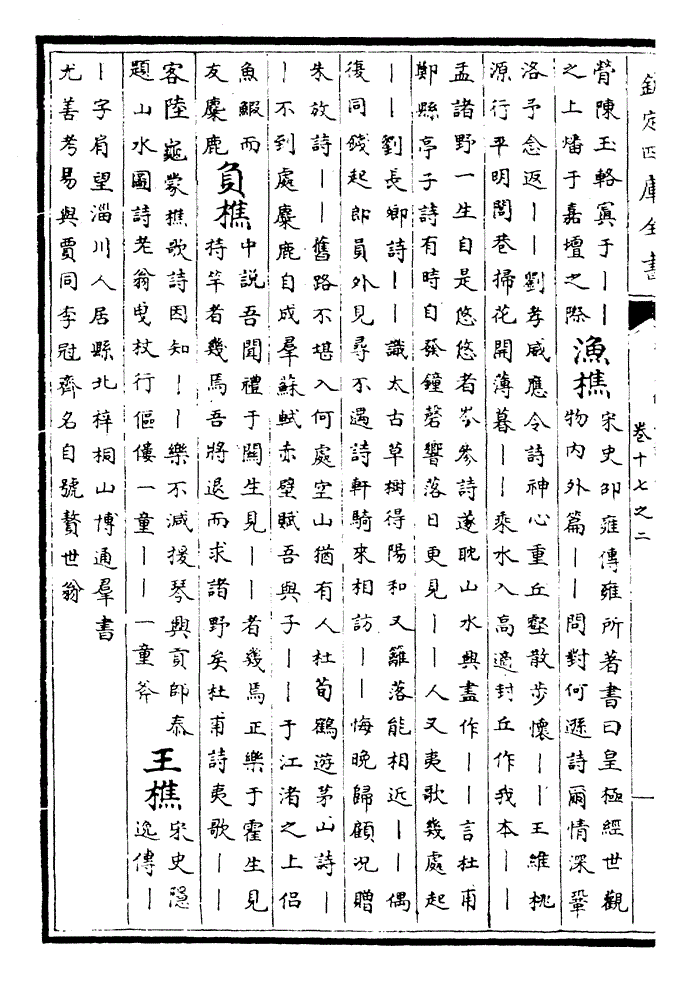 欽定四庫全書
卷十七之二
膋陳玉輅寘于丨丨
之上燔于嘉壇之際
漁樵
宋史邵雍傳雍所著書曰皇極經世觀
物内外篇丨丨問對何遜詩爾情深鞏
洛予念返丨丨劉孝威應令詩神心重丘壑散步懷丨丨王維桃
源行平明閭巷掃花開薄暮丨丨乘水入高適封丘作我本丨丨
孟諸野一生自是悠悠者岑參詩遂耽山水興盡作丨丨言杜甫
鄭縣亭子詩有時自發鐘磬響落日更見丨丨人又夷歌幾處起
丨丨劉長卿詩丨丨識太古草樹得陽和又籬落能相近丨丨偶
復同錢起郎員外見尋不遇詩軒騎來相訪丨丨悔晚歸顧况贈
朱放詩丨丨舊路不堪入何處空山猶有人杜荀鶴遊茅山詩丨
丨不到處麋鹿自成羣蘇軾赤壁賦吾與子丨丨于江渚之上侣
魚鰕而
友麋鹿
負樵
中説吾聞禮于關生見丨丨者幾焉正樂于霍生見
持竿者幾焉吾將退而求諸野矣杜甫詩夷歌丨丨
客陸龜蒙樵歌詩因知丨丨樂不減援琴興貢師泰
題山水圖詩老翁曳杖行傴僂一童丨丨一童斧
王樵
宋史隱
逸傳丨
丨字肩望淄川人居縣北梓桐山博通羣書
尤善考易與賈同李冠齊名自號贅世翁